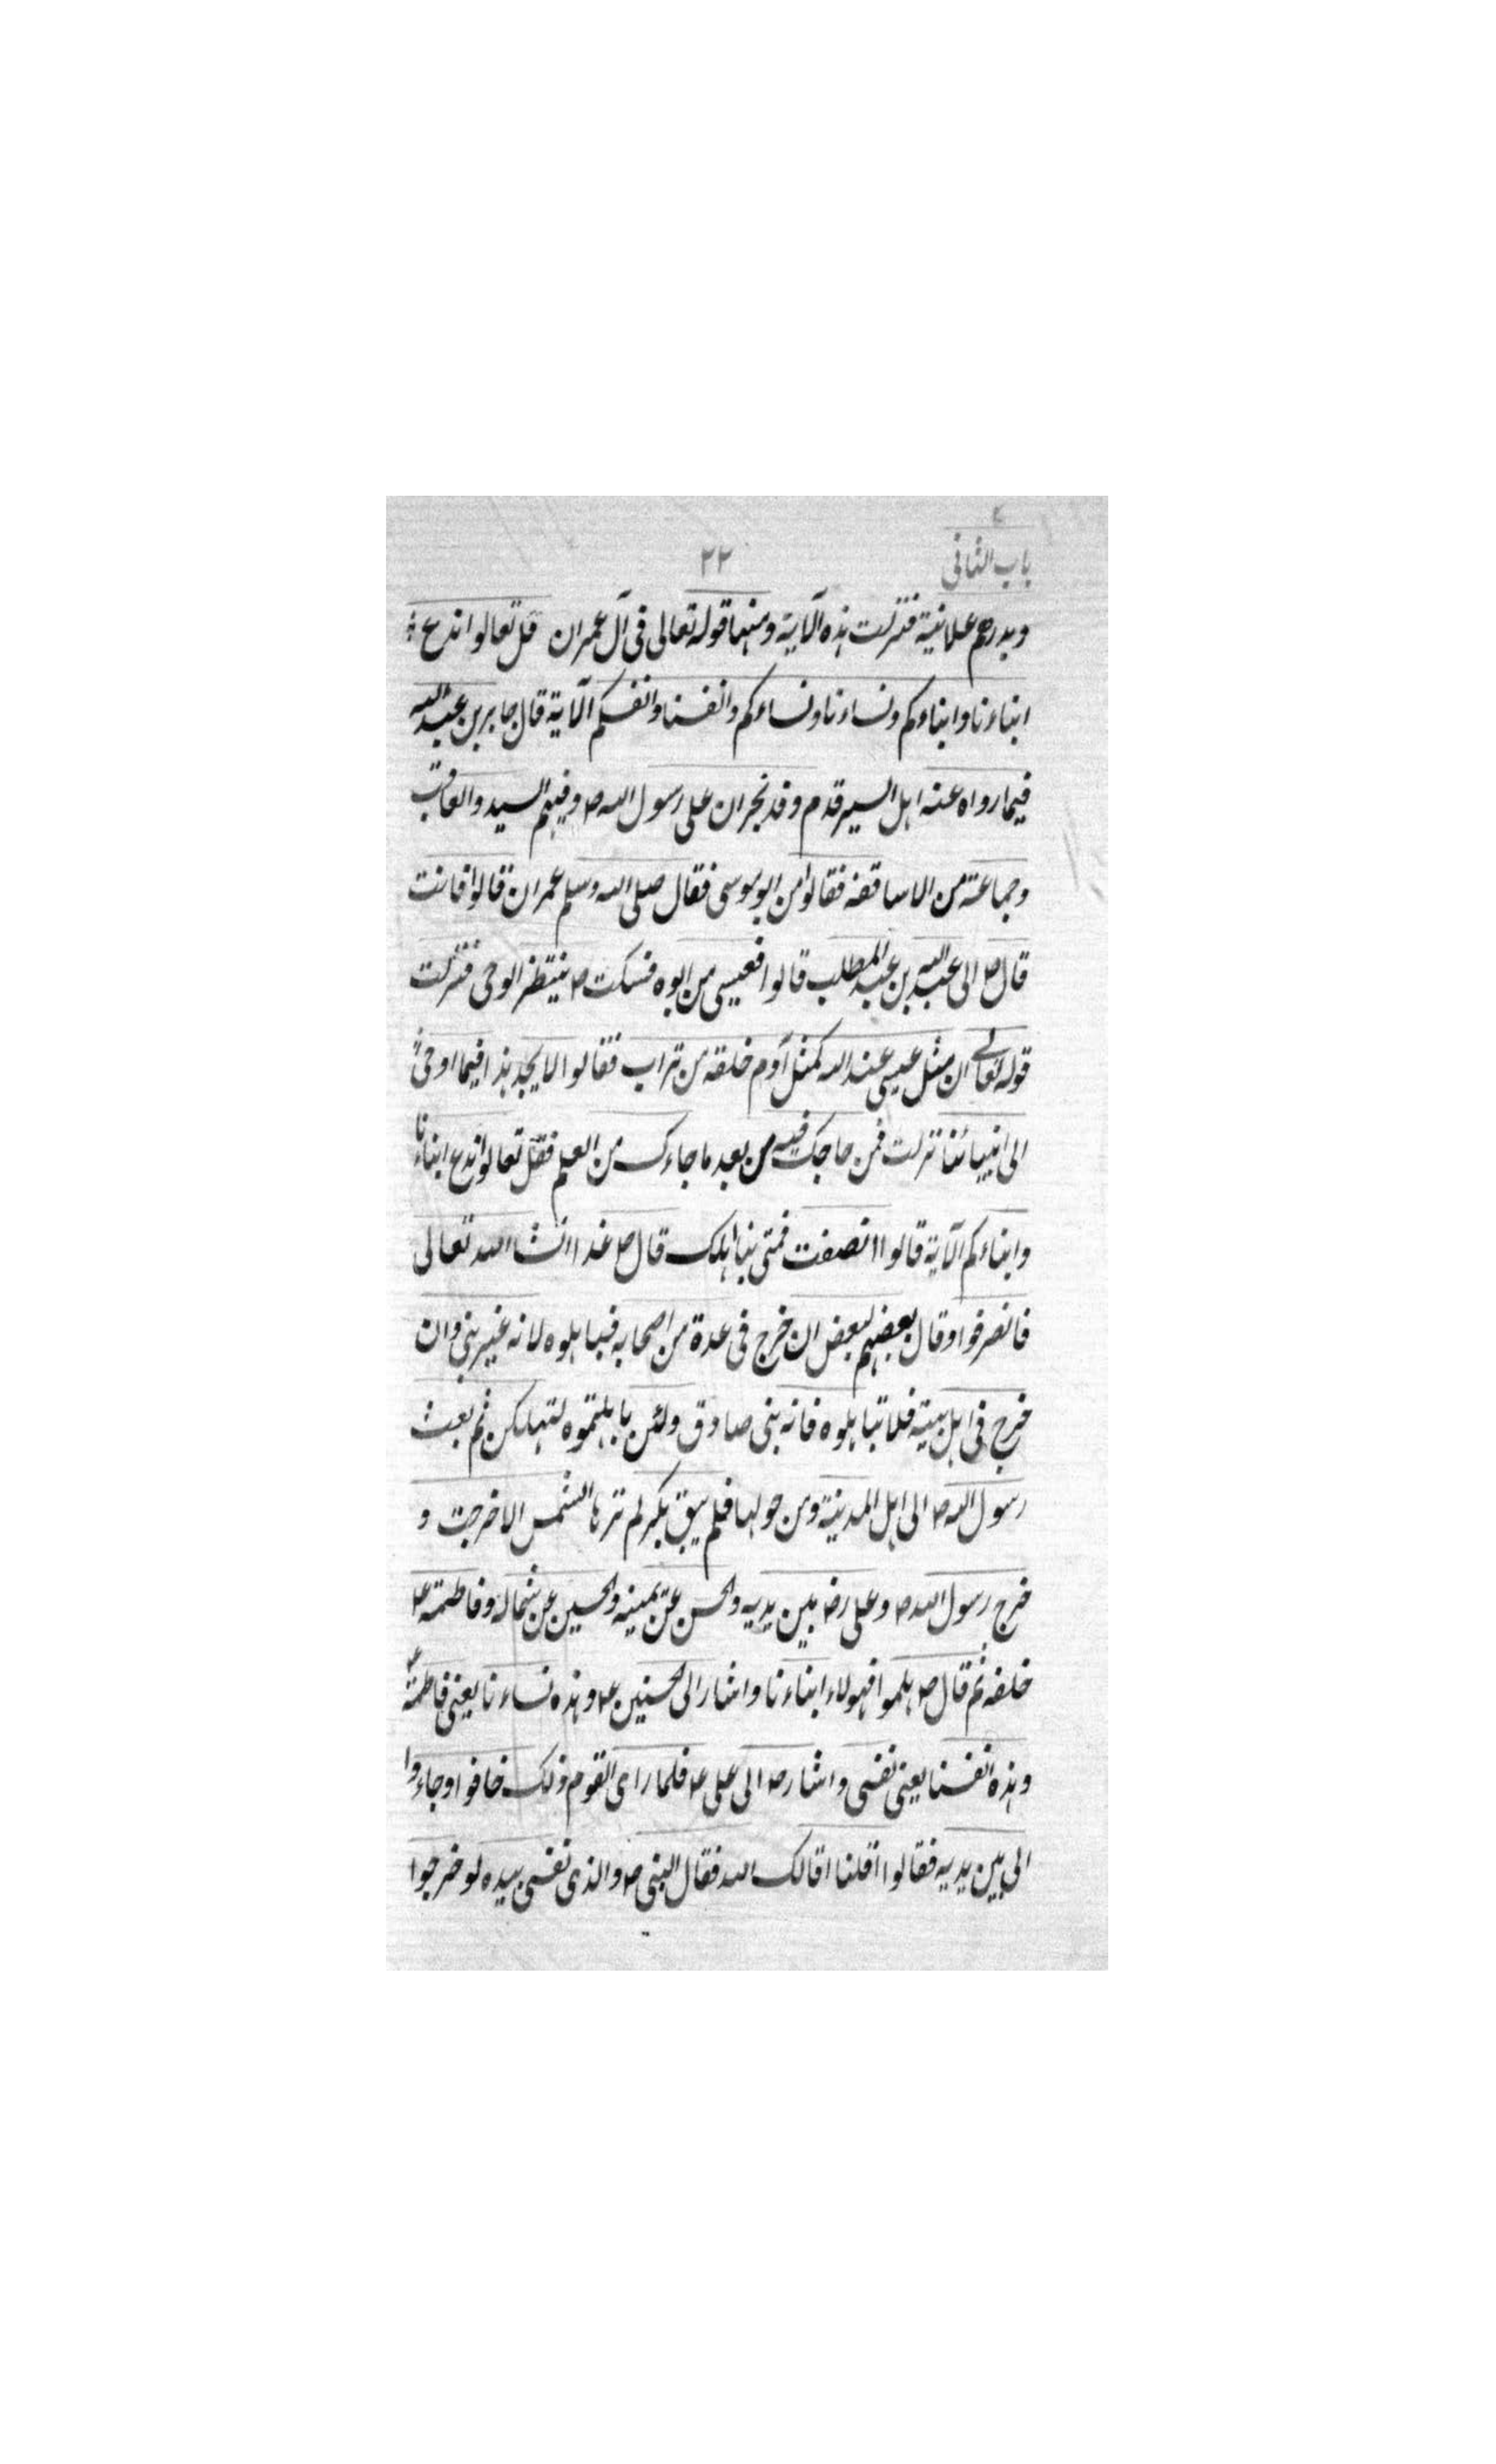 باب الثانی
۲۲
وبدرهم علانیة فنزلت هذه الآیة ومنها قوله تعالی فی آل عمران قل تعالوا ندع
ابناءنا وابناءکم ونساءنا ونساءکم وانفسنا وانفسکم الآیة قال جابر بن عبد الله
فیما رواه عنه اهل السیر قدم وفد نجران علی رسول الله ص وفیهم السید والعاقب
وجماعة من الاساقفه فقالوا من ابو موسی فقال صلی الله وسلم عمران قالوا فانت
قال ص ابی عبد الله بن عبد المطلب قالوا فعیسی من ابوه فسکت ص ینتظر الوحی فنزلت
قوله تعالے ان مثل عیسی عند الله کمثل آدم خلقه من تراب فقالوا لا یجد هذا فیما اوحی
الی انبیائنا نزلت فمن حاجک فیه من بعد ما جاءک من العلم فقل تعالوا ندع ابناءنا
وابناءکم الآیة قالوا انصفت فمتی نباهلک قال ص غدا انشاالله تعالی
فانصرفوا وقال بعضهم لبعض ان خرج فی عدة من اصحابه فباهلوه لانه غیر نبی وان
خرج فی اهل بیته فلا تباهلوه فانه نبی صادق ولئن باهلتموه لتهلکن ثم بعث
رسول الله ص الی اهل المدینة ومن حولها فلم یبق بکر لم ترها الشمس الا خرجت و
خرج رسول الله ص وعلی رض بین یدیه والحسن عن یمینه والحسین عن شماله وفاطمة ع
خلفه ثم قال ص هلموا فهولاء ابناءنا واشار الی الحسنین ع وهذه نساءنا یعنی فاطمة ع
وهذه انفسنا یعنی نفسی واشار ص الی علی ع فلما رای القوم ذلک خافوا وجاءوا
الی بین یدیه فقالوا اقلنا اقالک الله فقال النبی ص والذی نفسی بیده لو خرجوا